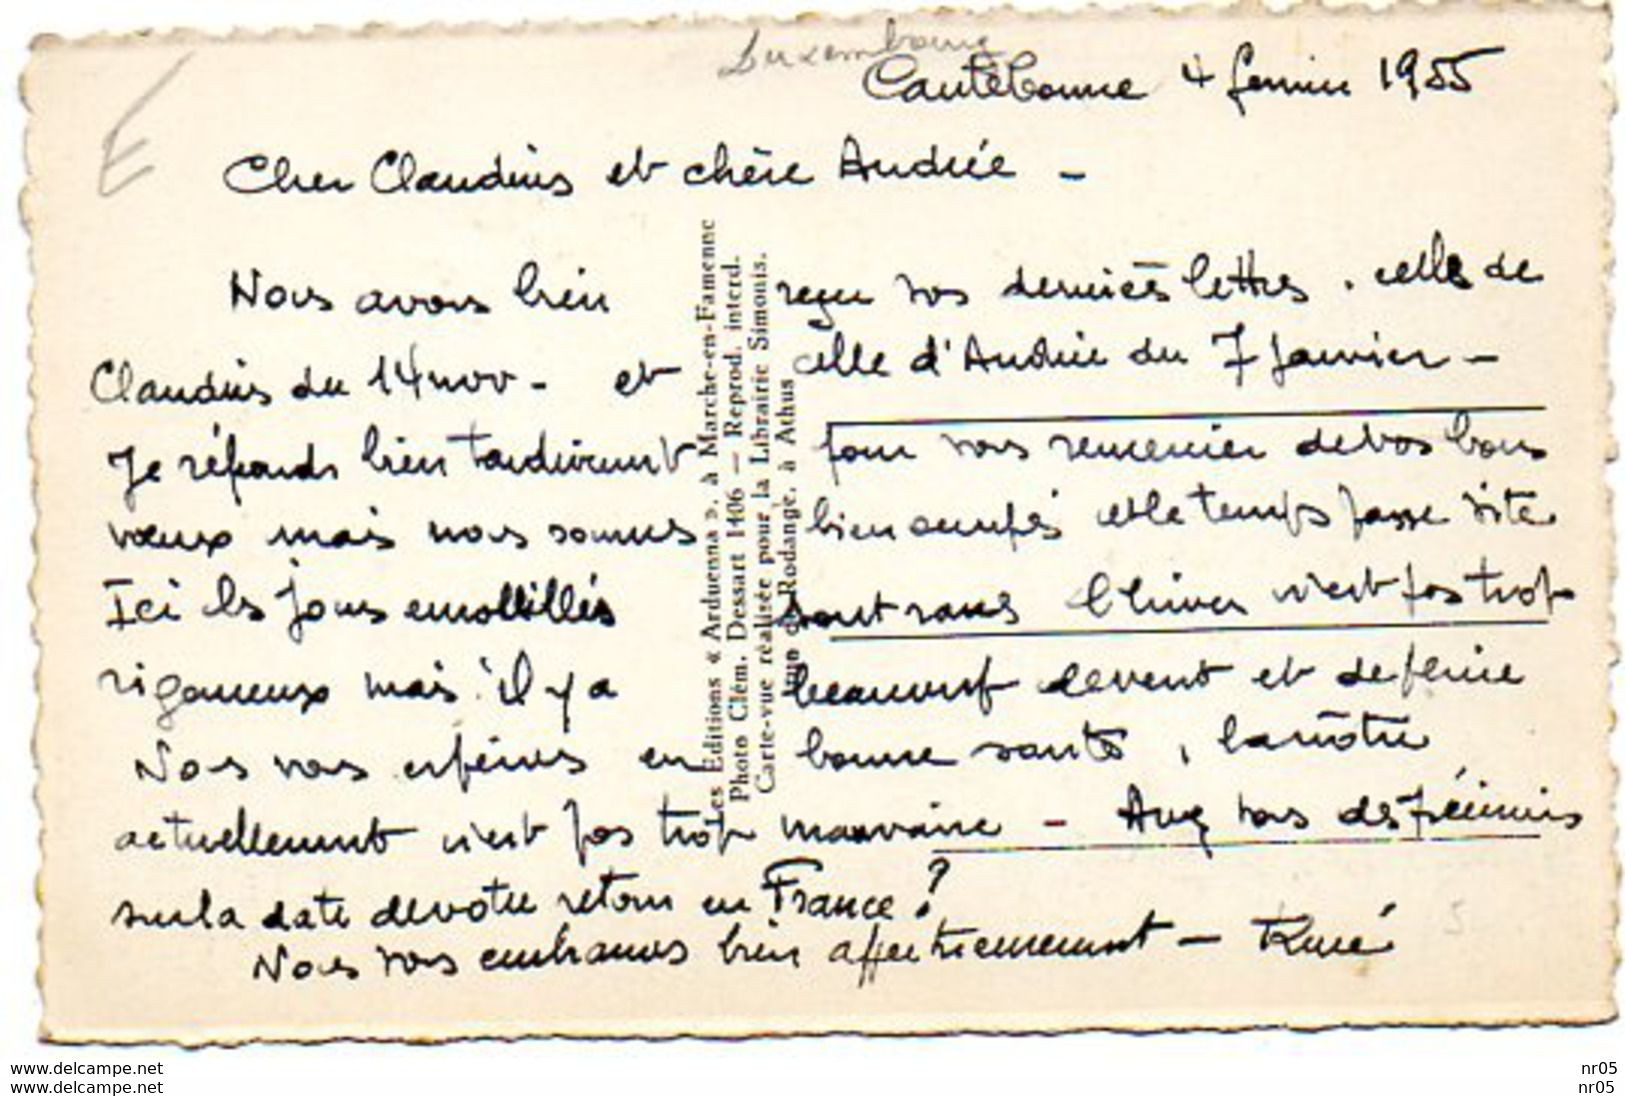 Luxembourg
Cantebonne 4 février 1955
E
Cher Claudius et chère Andrée -
Nous avons bien reçu vos dernières lettres. celle de
Claudius du 14 nov - et celle d'Andrée du 7 Janvier -
Je réponds bien tardivement pour vous remercier de vos bons
vœux mais nous sommes bien occupés et le temps passe vite
Ici les jours sont sans l'hiver n'est pas trop
rigoureux mais il y a beaucoup de vent et de pluie
Nous vous espérons en bonne santé, la nôtre
actuellement n'est pas trop mauvaise - Avez vous des précisions
sur la date de votre retour en France ?
Nous vous embrassons bien affectueusement - René
Les Editions « Arduenna », à Marche-en-Famenne
Photo Clém. Dessart 1406 — Reprod. interd.
Carte-vue réalisée pour la Librairie Simonis.
Rodange, à Athus
www.delcampe.net nr05
www.delcampe.net nr05